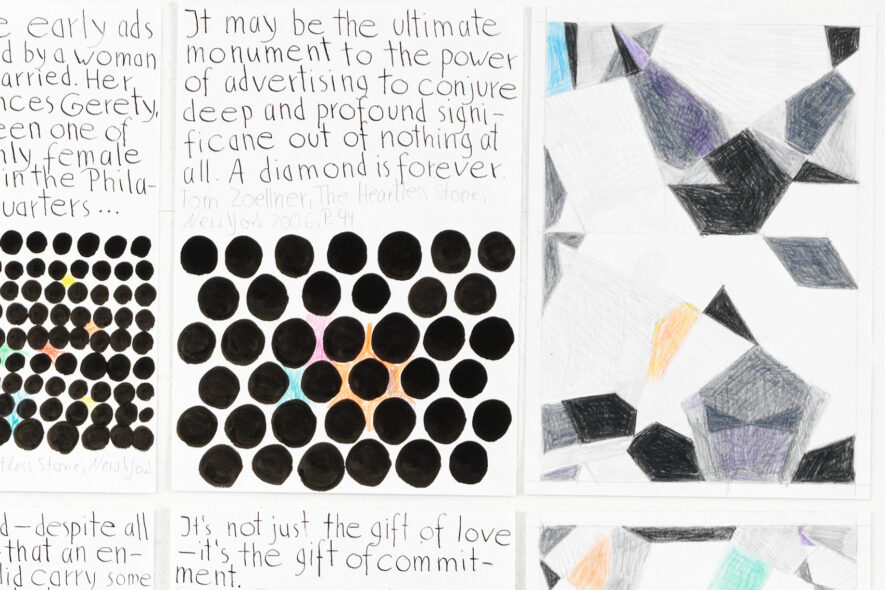 e early ads
d by a woman
arried. Her
nces Gerety,
een one of
nly female
in the Phila-
uarters...
tless Stone, New York
It may be the ultimate
monument to the power
of advertising to conjure
deep and profound signi-
ficane out of nothing at
all. A diamond is forever.
Tom Zoellner, The Heartless Stone,
New York 2006, P. 44
d–despite all
that an en-
lid carry some
It's not just the gift of love
–it's the gift of commit-
ment.